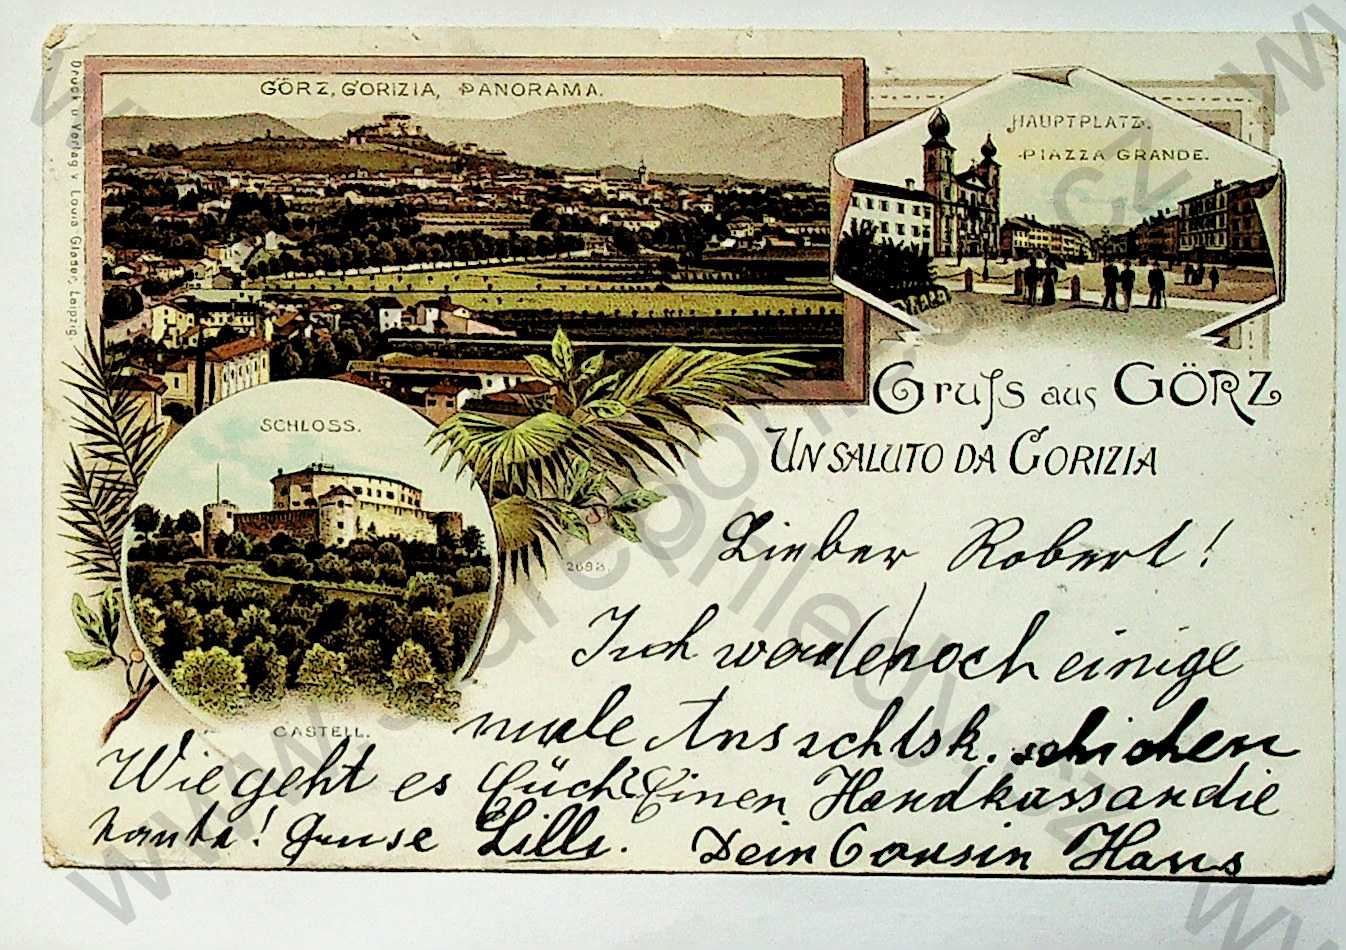 Druck u. Verlag v. Louis Glaser, Leipzig.
GÖRZ, GORIZIA, PANORAMA.
HAUPTPLATZ.
PIAZZA GRANDE.
Gruss aus GÖRZ
UN SALUTO DA GORIZIA
SCHLOSS.
CASTELL.
2698.
Lieber Robert!
Ich werde noch einige
male Ansschtsk. schichen
Wie geht es Eüch? Einen Handkuss an die
tante! Grüse Lilli. Dein Cousin Hans
www.sberatel.com